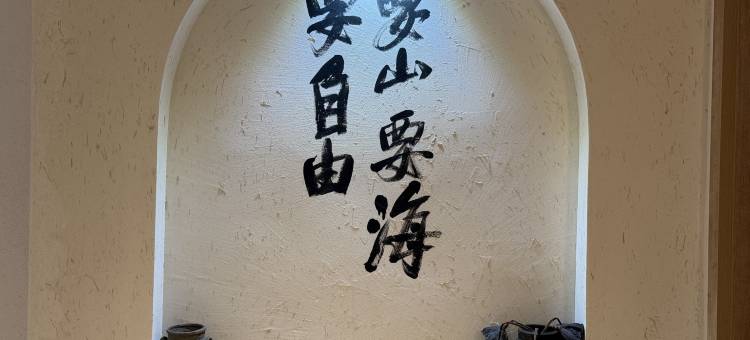 要山要海
要自由